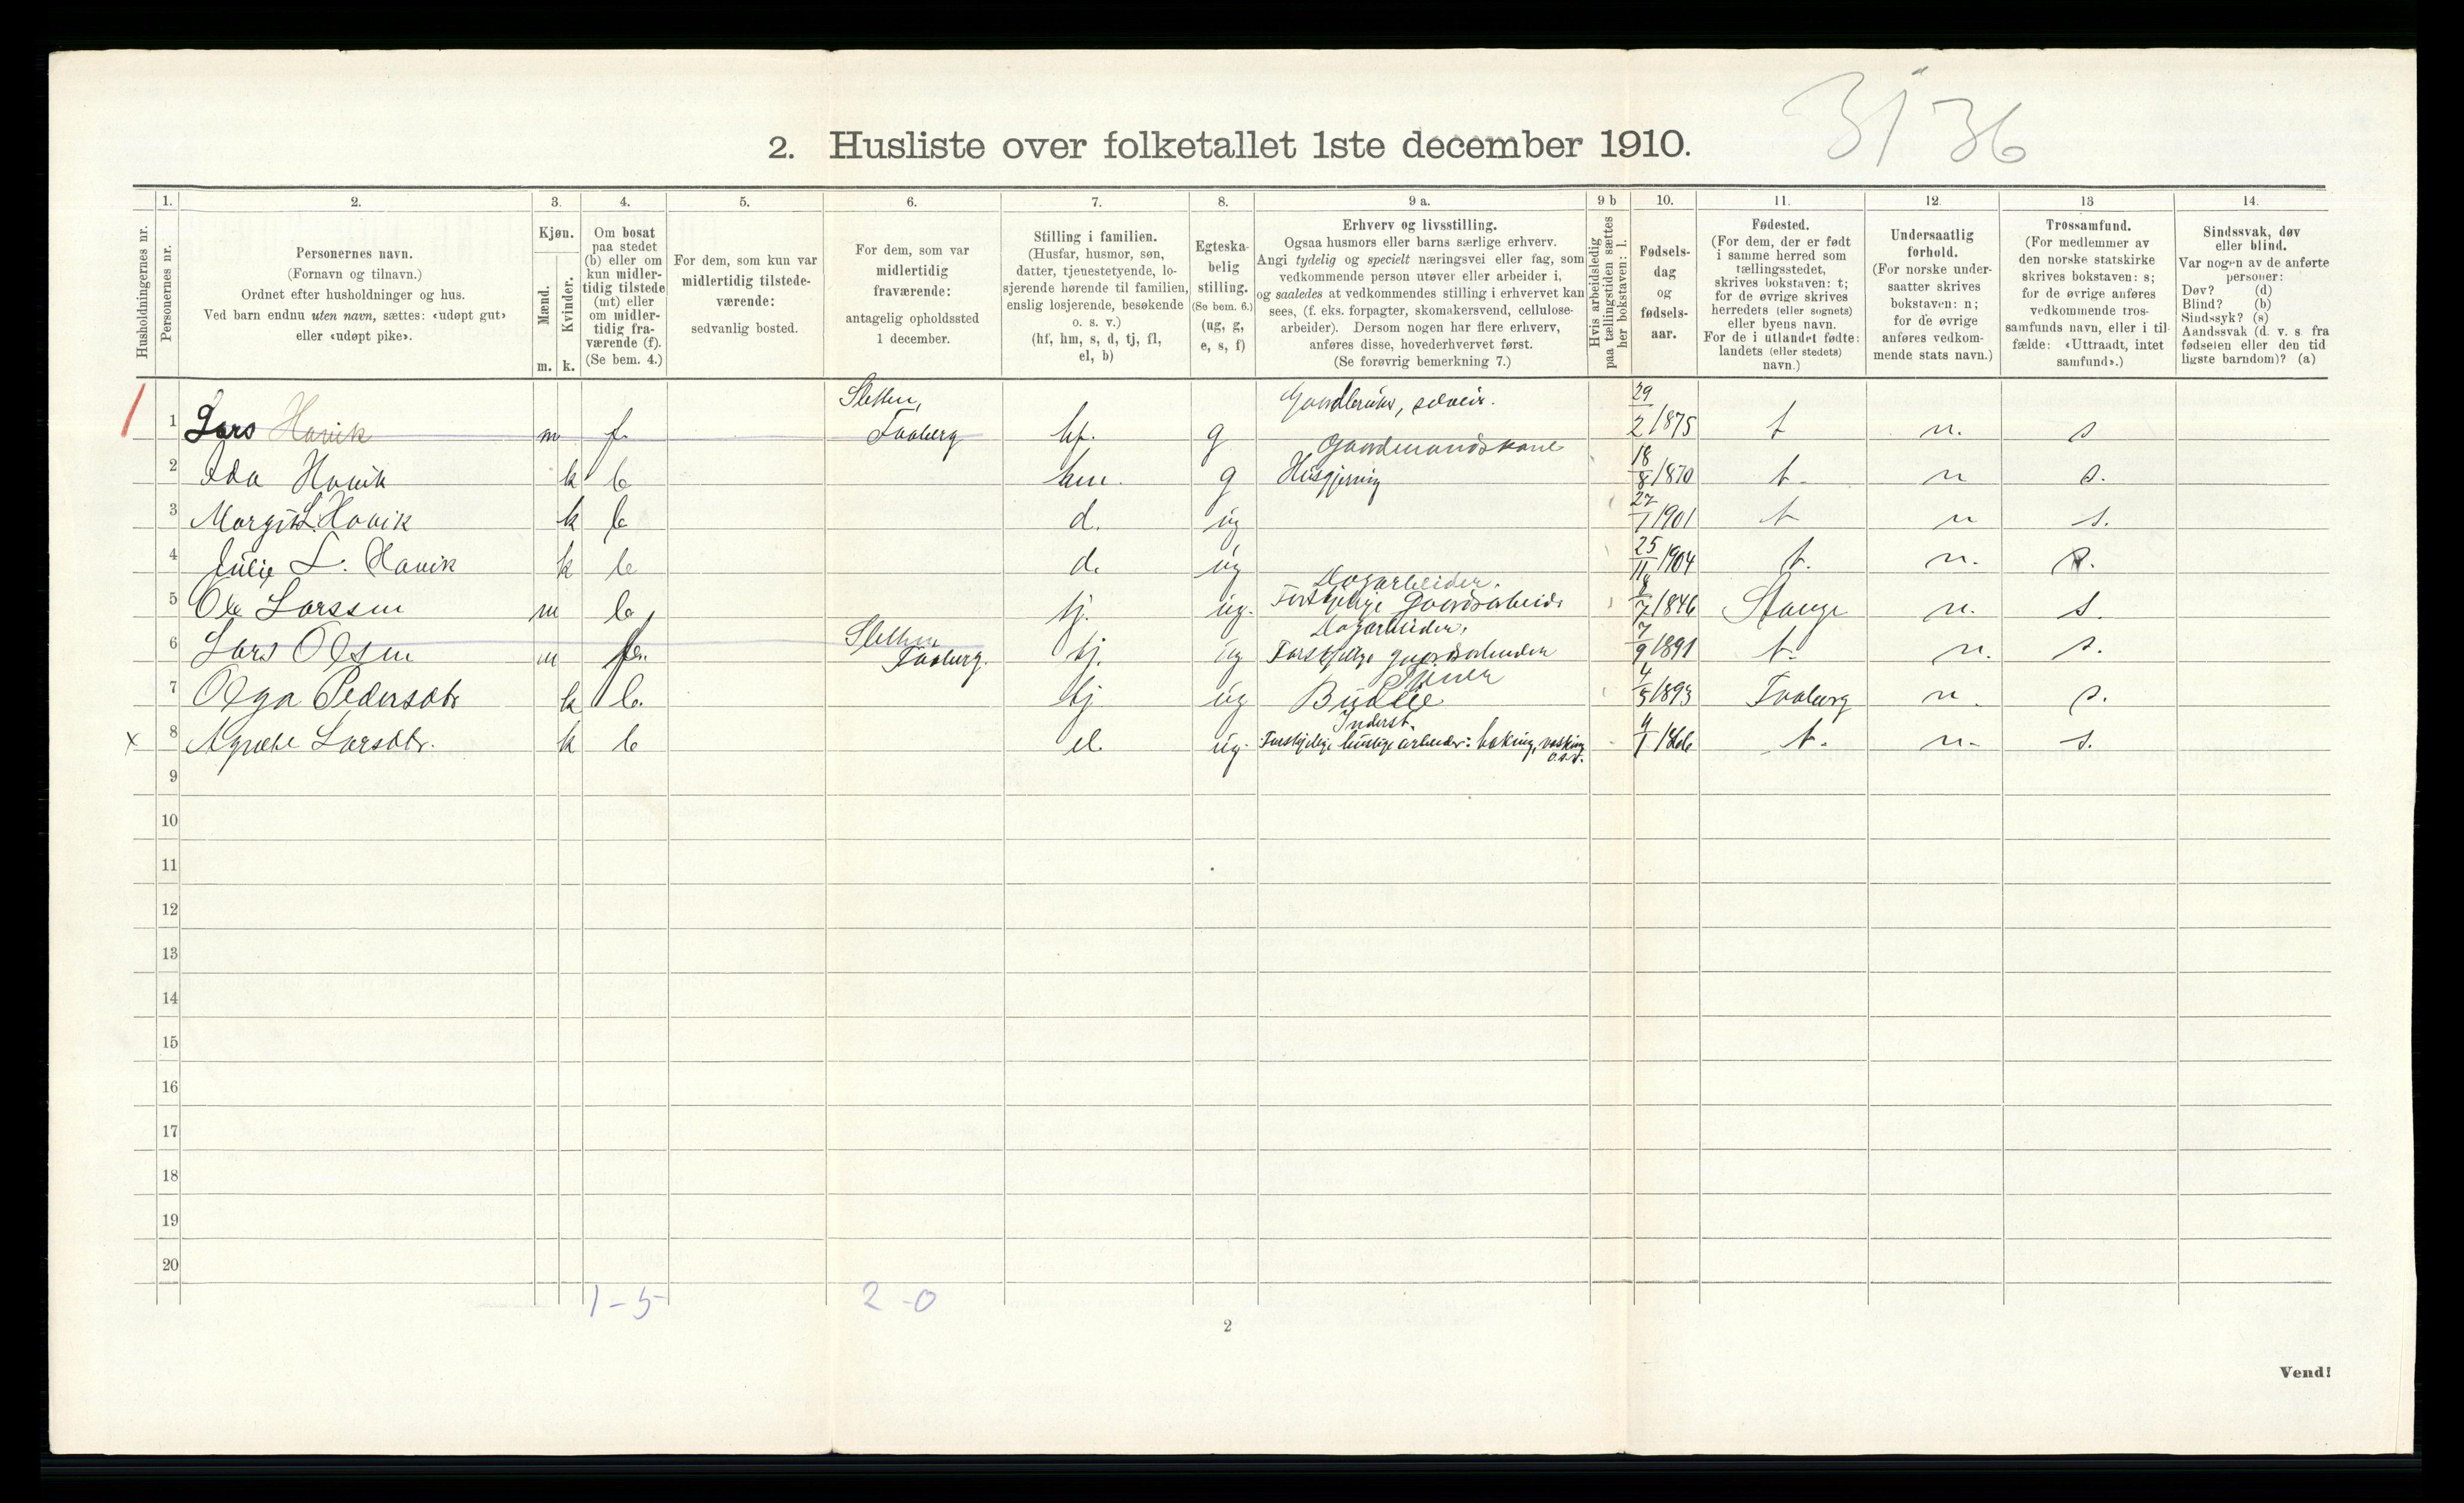 31 36
2. Husliste over folketallet 1ste december 1910.
1. 2. 3. 4. 5. 6. 7. 8. 9 a. 9 b 10. 11. 12. 13 14.
Husholdningernes nr.
Personernes nr.
Personernes navn.
(Fornavn og tilnavn.)
Ordnet efter husholdninger og hus.
Ved barn endnu uten navn, sættes: «udøpt gut»
eller «udøpt pike».
Kjøn.
Mænd.
Kvinder.
m. k.
Om bosat
paa stedet
(b) eller om
kun midler-
tidig tilstede
(mt) eller
om midler-
tidig fra-
værende (f).
(Se bem. 4.)
For dem, som kun var
midlertidig tilstede-
værende:
sedvanlig bosted.
For dem, som var
midlertidig
fraværende:
antagelig opholdssted
1 december.
Stilling i familien.
(Husfar, husmor, søn,
datter, tjenestetyende, lo-
sjerende hørende til familien,
enslig losjerende, besøkende
o. s. v.)
(hf, hm, s, d, tj, fl,
el, b)
Egteska-
belig
stilling.
(Se bem. 6.)
(ug, g,
e, s, f)
Erhverv og livsstilling.
Ogsaa husmors eller barns særlige erhverv.
Angi tydelig og specielt næringsvei eller fag, som
vedkommende person utøver eller arbeider i,
og saaledes at vedkommendes stilling i erhvervet kan
sees, (f. eks. forpagter, skomakersvend, cellulose-
arbeider). Dersom nogen har flere erhverv,
anføres disse, hovederhvervet først.
(Se forøvrig bemerkning 7.)
Hvis arbeidsledig
paa tællingstiden sættes
her bokstaven: l.
Fødsels-
dag
og
fødsels-
aar.
Fødested.
(For dem, der er født
i samme herred som
tællingsstedet,
skrives bokstaven: t;
for de øvrige skrives
herredets (eller sognets)
eller byens navn.
For de i utlandet fødte:
landets (eller stedets)
navn.)
Undersaatlig
forhold.
(For norske under-
saatter skrives
bokstaven: n;
for de øvrige
anføres vedkom-
mende stats navn.)
Trossamfund.
(For medlemmer av
den norske statskirke
skrives bokstaven: s;
for de øvrige anføres
vedkommende tros-
samfunds navn, eller i til-
fælde: «Uttraadt, intet
samfund».)
Sindssvak, døv
eller blind.
Var nogen av de anførte
personer:
Døv? (d)
Blind? (b)
Sindssyk? (s)
Aandssvak (d. v. s. fra
fødselen eller den tid
ligste barndom)? (a)
1
Sletten,
Gaardbruker, selveier.
1 Lars Havik m f. Faaberg hf. g 29/2 1875 t n. s
Gaardmandskone
2 Ida Havik k b hm. g Husgjerning 18/8 1870 t. n s.
3 Margit L. Havik k b d. ug 27/1 1901 t n s.
4 Julie L. Havik k b d. ug 25/11 1904 t. n. s.
Dagarbeider.
5 Ole Larssen m b tj. ug. Forskjellige Gaardsarbeide 8/7 1846 Stange n. s.
Sletten Dagarbeider.
6 Lars Olsen m f. Faaberg. tj. ug Forskjellige gaardsarbeider 7/9 1891 t. n. s.
7 Olga Pedersdtr k b. tj ug Budeie 4/5 1893 Faaberg n. s.
Inderst.
x 8 Agnethe Larsdtr. k b el. ug. Forskjelige huslige arbeider: baking, vasking 4/1 1866 t. n. s.
o.s.v.
9
10
11
12
13
14
15
16
17
18
19
20
1-5 2-0
2
Vend!